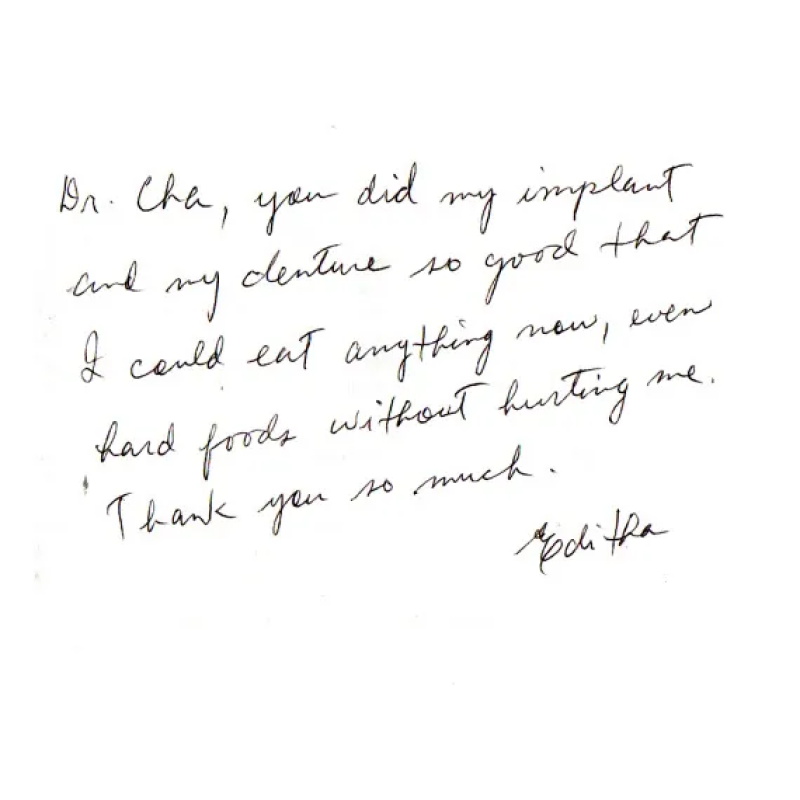 Dr. Cha, you did my implant
and my denture so good that
I could eat anything now, even
hard foods without hurting me.
Thank you so much.
Editha